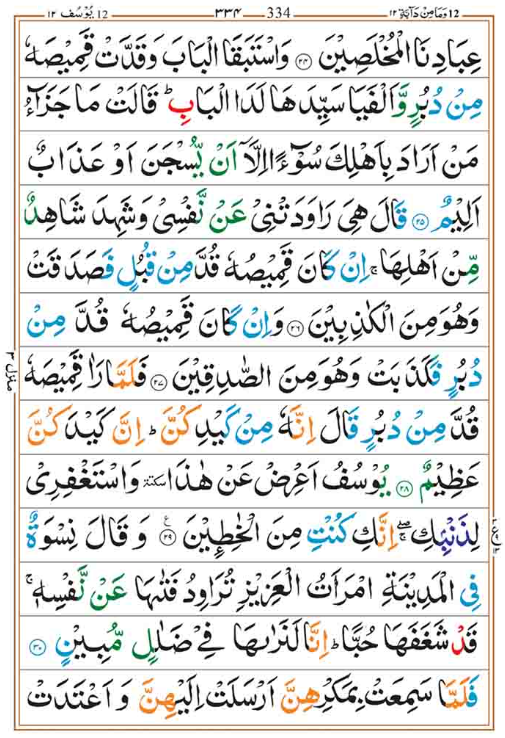 12 يُوْسُف ١٢ ٣٣٤ 334 12 وَمَا مِنْ دَآبَّةٍ ١٢
عِبَادِنَا الْمُخْلَصِيْنَ ۝٢٤ وَاسْتَبَقَا الْبَابَ وَقَدَّتْ قَمِيْصَهٗ
مِنْ دُبُرٍ وَّاَلْفَيَا سَيِّدَهَا لَدَا الْبَابِ ؕ قَالَتْ مَا جَزَآءُ
مَنْ اَرَادَ بِاَهْلِكَ سُوْٓءًا اِلَّاۤ اَنْ يُّسْجَنَ اَوْ عَذَابٌ
اَلِيْمٌ ۝٢٥ قَالَ هِيَ رَاوَدَتْنِيْ عَنْ نَّفْسِيْ وَشَهِدَ شَاهِدٌ
مِّنْ اَهْلِهَا ۚ اِنْ كَانَ قَمِيْصُهٗ قُدَّ مِنْ قُبُلٍ فَصَدَقَتْ
وَهُوَ مِنَ الْكٰذِبِيْنَ ۝٢٦ وَاِنْ كَانَ قَمِيْصُهٗ قُدَّ مِنْ
دُبُرٍ فَكَذَبَتْ وَهُوَ مِنَ الصّٰدِقِيْنَ ۝٢٧ فَلَمَّا رَاٰ قَمِيْصَهٗ
قُدَّ مِنْ دُبُرٍ قَالَ اِنَّهٗ مِنْ كَيْدِكُنَّ ؕ اِنَّ كَيْدَكُنَّ
عَظِيْمٌ ۝٢٨ يُوْسُفُ اَعْرِضْ عَنْ هٰذَا سكتة وَاسْتَغْفِرِيْ
لِذَنْۢبِكِ ۖۚ اِنَّكِ كُنْتِ مِنَ الْخٰطِـِٕيْنَ ۝٢٩ ع وَ قَالَ نِسْوَةٌ
فِي الْمَدِيْنَةِ امْرَاَتُ الْعَزِيْزِ تُرَاوِدُ فَتٰىهَا عَنْ نَّفْسِهٖ ۚ
قَدْ شَغَفَهَا حُبًّا ؕ اِنَّا لَنَرٰىهَا فِيْ ضَلٰلٍ مُّبِيْنٍ ۝٣٠
فَلَمَّا سَمِعَتْ بِمَكْرِهِنَّ اَرْسَلَتْ اِلَيْهِنَّ وَ اَعْتَدَتْ
منزل ٣